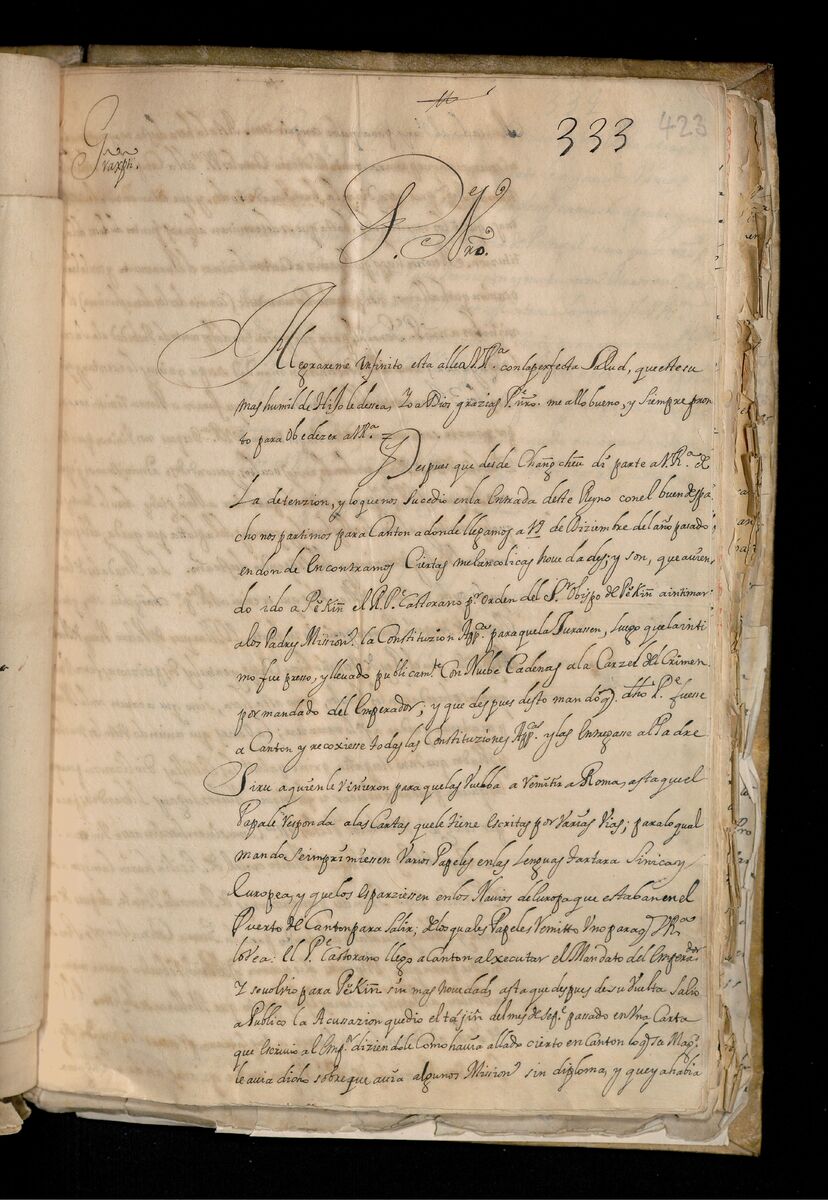 333 423
P. N.ro
Alegrareme infinito esta alle a V.P.a con la perfecta Salud, que este su
mas humilde Hijo le dessea, Yo a Dios grazias P.e n̄ro. me allo bueno, y siempre pron
to para Obedezer a V.R.a =
Despues que desde Chang cheu di parte a V.R.a de
La detenzion, y lo que nos sucedio en la Entrada deste Reyno con el buen despa
cho nos partimos para Canton a donde llegamos a de Diziembre del año pasado
en donde encontramos Ciertas melancolicas novedades; y son, que avien
do ido a Pekin el R.P.e Castorano p.r Orden del S.r Obispo de Pekin a intimar
a los Padres Mission.s la Constituzion App.ca para que la Jurassen, luego que la inti
mo fue presso, y llevado publicam.te con Nuebe Cadenas a la Carzel del Crimen
por mandado del Emperador; y que despues desto mando q̃ dho P.e fuesse
a Canton y recoxiesse todas las Constituziones App.cas y las Entregasse al Padre
a quien le vinieron para que las vuelba a remitir a Roma, asta que el
Papa le responda a las Cartas que le tiene escritas por varias vias; para lo qual
mando se imprimiessen varios Papeles en las Lenguas tartara Sinica y
Europea, y que los esparziessen en los Navios de Europa que estaban en el
Puerto de Canton para salir; de los quales Papeles remitto Uno para q̃ V.R.a
lo vea: El P.e Castorano llego a Canton al xecutar el Mandato del Empera.dor
Y se volvio para Pekin sin mas novedad, asta que despues de su Vuelta salio
a Publico la Acussazion que dio el tajin del mes de Sep.e passado en Una Carta
que escrivio al Emp.r diziendole Como havia allado cierto en Canton lo q̃ su Mag.d
le avia dicho sobre que avia algunos Mission.s sin diploma, y que ya habia